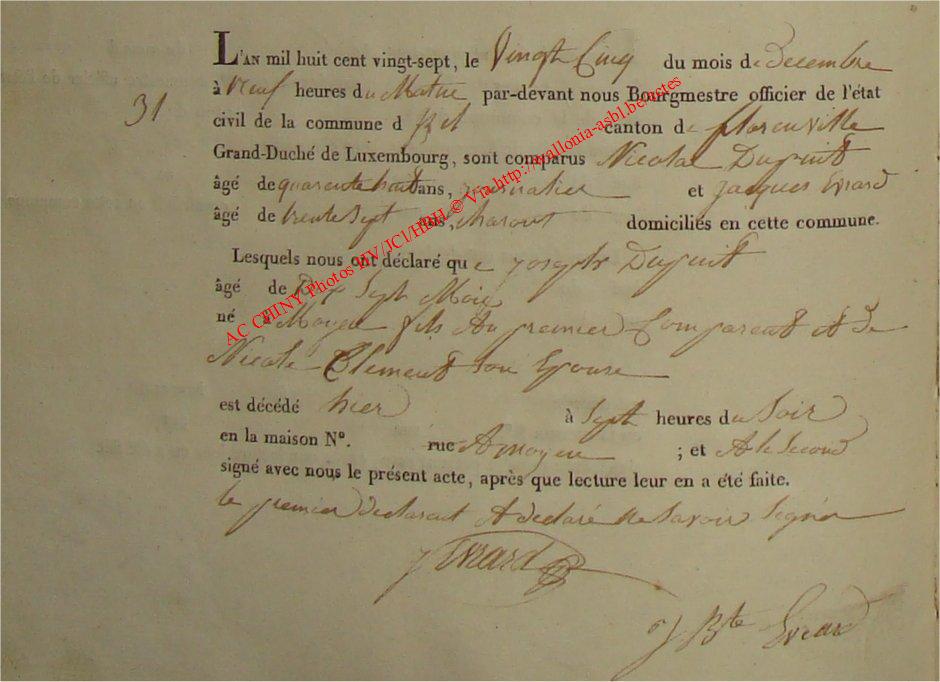 L'AN mil huit cent vingt-sept, le Vingt Cinq du mois de Decembre
31
à neuf heures du Matin par-devant nous Bourgmestre officier de l'état
civil de la commune d canton de florenville
Grand-Duché de Luxembourg, sont comparus Nicolas Dupuit
âgé de quarente huit ans, journalier et jacques Evrard
âgé de trente Sept ans, domiciliés en cette commune.
Lesquels nous ont déclaré que joseph Dupuit
âgé de Dix Sept Mois
né à Moyen fils du premier Comparent et de
Nicole Clement son Epouse
est décédé hier à Sept heures du Soir
en la maison N°. rue A moyen ; et A le Second
signé avec nous le présent acte, après que lecture leur en a été faite.
le premier declarent A declaré ne Savoir Signer
J Evrard
J Bte Evrard
AC CHINY Photos HV/JCl/HBH © Via http://wallonia-asbl.be/actes